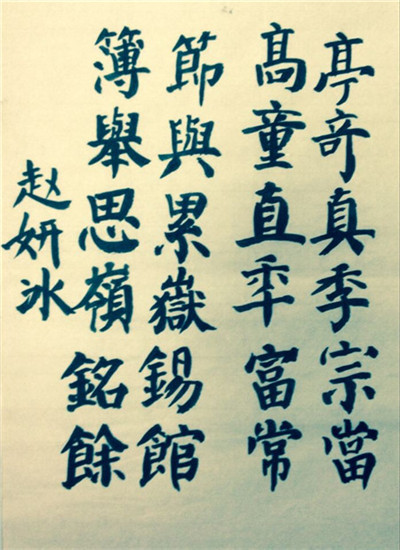 亭竒真季宗當
髙童直年富常
節與累嶽錫館
簿舉思嶺銘餘
赵妍冰